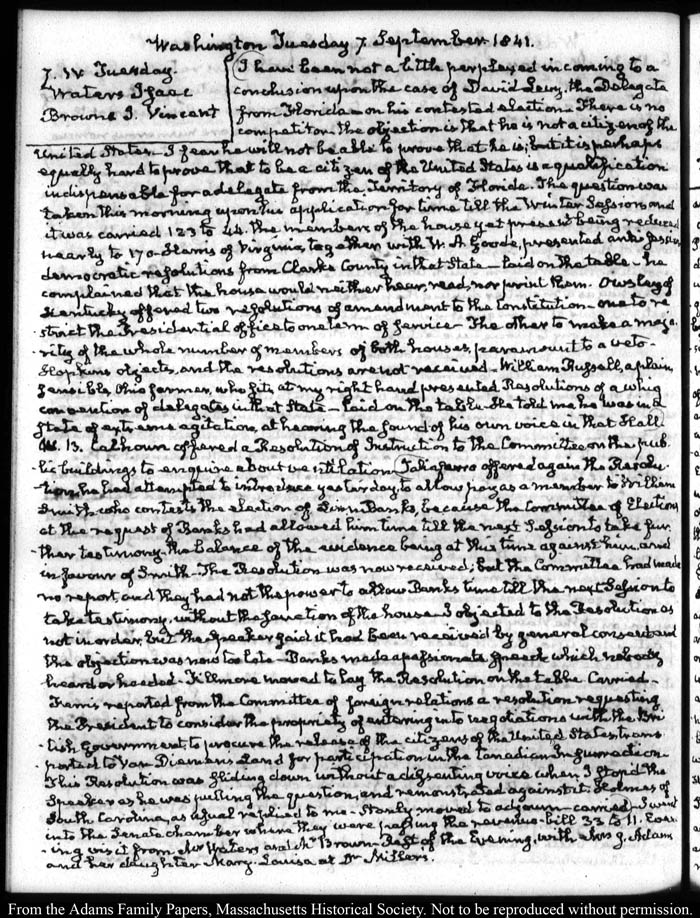 Washington Tuesday 7. September 1841.
7. IV. Tuesday.
Waters Isaac
Browne J. Vincent
I have been not a little perplexed in coming to a
conclusion upon the case of David Levy, the Delegate
from Florida on his contested election. There is no
competitor. the objection is that he is not a citizen of the
United States. I fear he will not be able to prove that he is; but it is perhaps
equally hard to prove that to be a citizen of the United States is a qualification
indispensable for a delegate from the Territory of Florida. The question was
taken this morning upon his application for time till the Winter Session and
it was carried 123 to 44. the members of the house yet present being reduced
nearly to 170. Harris of Virginia, together with W. A. Goode, presented
democratic resolutions from Clarke County in that State – laid on the table – he
complained that the house would neither hear, read, nor print them. Owsley of
Kentucky offered two resolutions of amendment to the Constitution – one to re
strict the Presidential office to one term of service – The other to make a majo-
-rity of the whole number of members of both houses, paramount to a veto –
Hopkins objects, and the resolutions are not received – William Russell, a plain
sensible, Ohio farmer, who sits at my right hand presented Resolutions of a whig
convention of delegates in that State – laid on the table. He told me he was in a
state of extreme agitation, at hearing the sound of his own voice in that Hall
13. Calhoun offered a Resolution of Instruction to the Committee on the pub-
-lic buildings to enquire about ventilation. Taliaferro offered again the Resolu-
-tion, he had attempted to introduce yesterday to allow pay as a member to William
Smith, who contests the election of Linn Banks, because the Committee of Elections
at the request of Banks had allowed him time till the next Session to take fur-
-ther testimony – the balance of the evidence being at this time against him, and
in favour of Smith – The Resolution was now received; but the Committee had made
no report, and they had not the power to allow Banks time till the next Session to
take testimony, without the sanction of the house. I objected to the Resolution as
not in order, but the Speaker said it had been received by general consent and
the objection was now too late – Banks made a passionate speech which nobody
heard or heeded. Fillmore moved to lay the Resolution on the table. Carried –
reported from the Committee of foreign relations a resolution requesting
the President to consider the propriety of entering into negotiations with the Bri-
-tish Government, to procure the release of the citizens of the United States, trans
-ported to Van Diemens Land for participation in the Canadian Insurrection.
This Resolution was sliding down without a dissenting voice when I stop'd the
Speaker as he was putting the question, and remonstrated against it. Holmes of
South Carolina, as usual replied to me – Stanly moved to adjourn – carried. I went
into the Senate chamber where they were passing the revenue-bill 33 to 11. Even
-ing visit from Mr Waters and Mr Brown – Rest of the Evening, with Mrs J. Adams
and her daughter Mary-Louisa at Dr Miller's.
From the Adams Family Papers, Massachusetts Historical Society. Not to be reproduced without permission.